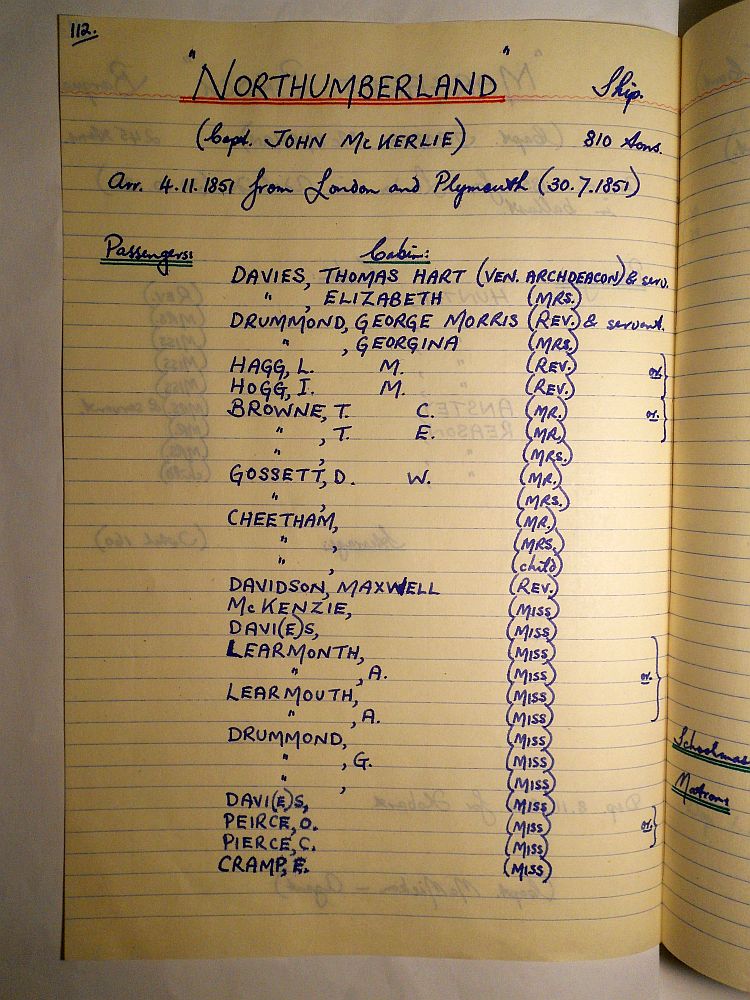 112.
"NORTHUMBERLAND" Ship.
(Capt. JOHN McKERLIE) 810 tons.
Arr. 4.11.1851 from London and Plymouth (30.7.1851)
Passengers: Cabin:
DAVIES, THOMAS HART (VEN. ARCHDEACON) & serv.
" , ELIZABETH (MRS.)
DRUMMOND, GEORGE MORRIS (REV.) & servant.
" , GEORGINA (MRS.)
HAGG, L. M. (REV.) or.
HOGG, I. M. (REV.)
BROWNE, T. C. (MR.) or.
" , T. E. (MR.)
" , (MRS.)
GOSSETT, D. W. (MR.)
" , (MRS.)
CHEETHAM, (MR.)
" , (MRS.)
" , (child)
DAVIDSON, MAXWELL (REV.)
McKENZIE, (MISS)
DAVI(E)S, (MISS)
LEARMONTH, (MISS)
" , A. (MISS) or.
LEARMOUTH, (MISS)
" , A. (MISS)
DRUMMOND, (MISS)
" , G. (MISS)
" , (MISS)
DAVI(E)S, (MISS)
PEIRCE, O. (MISS) or.
PIERCE, C. (MISS)
CRAMP, E. (MISS)
Schoolmas
Matrons